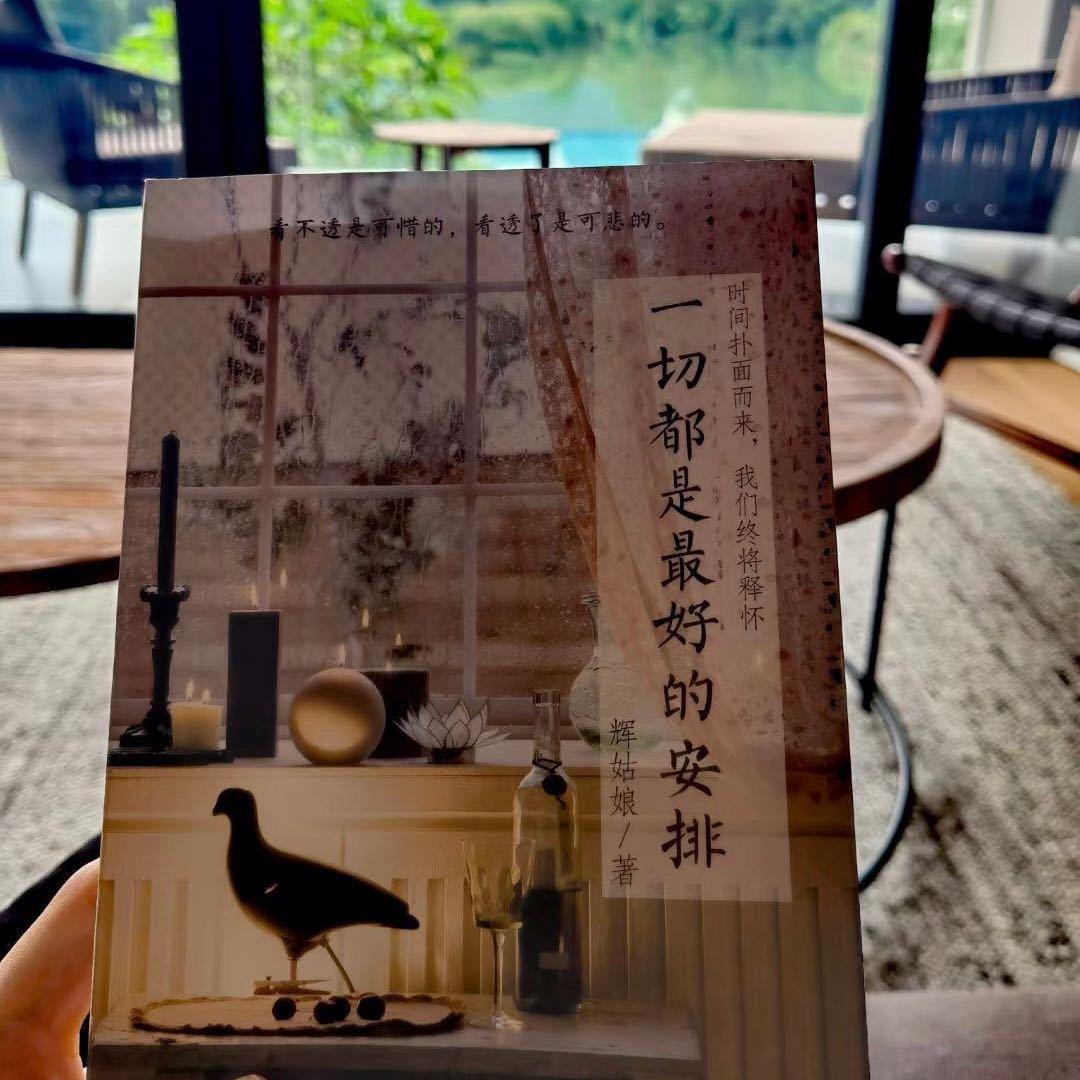 看不透是可惜的，看透了是可悲的。
时间扑面而来，我们终将释怀
一切都是最好的安排
辉姑娘/著